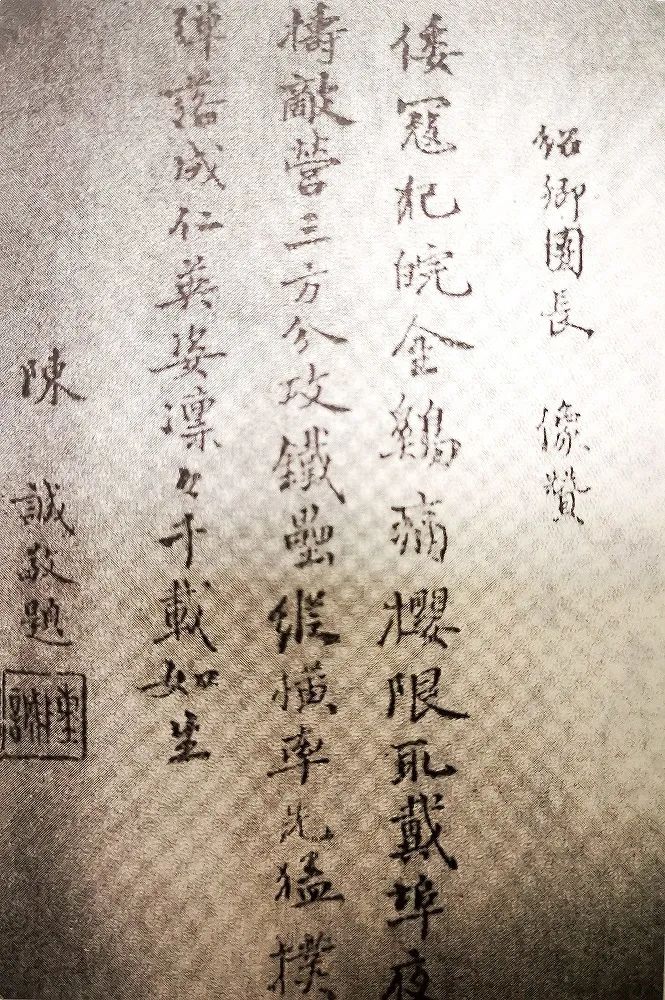 紹卿團長 像贊
倭寇犯皖金鷄痛攖限取戴埠夜
擣敵營三方分攻鐵壘縱橫率先猛撲
彈落成仁英姿凜々千載如生
陳 誠敬題